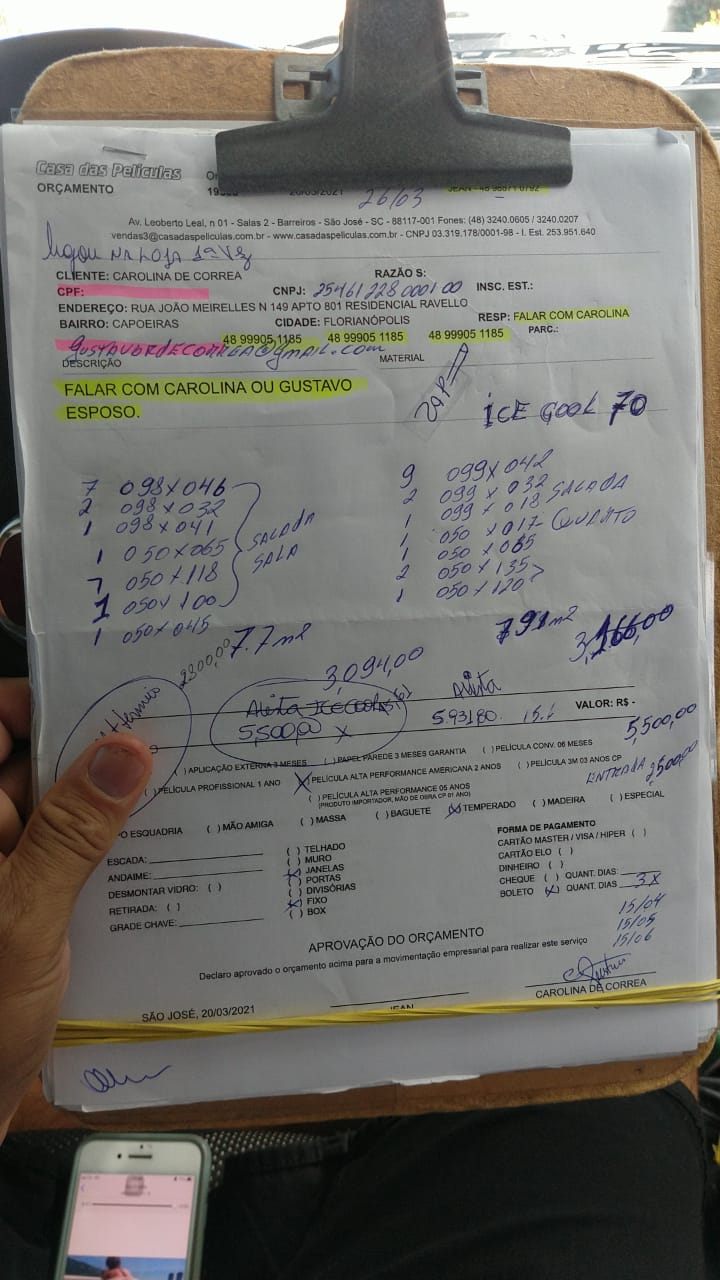 Casa das Películas
ORÇAMENTO
20/03/2021 26/03 JEAN - 48 98871 0792
Av. Leoberto Leal, n 01 - Salas 2 - Barreiros - São José - SC - 88117-001 Fones: (48) 3240.0605 / 3240.0207
vendas3@casadaspeliculas.com.br - www.casadaspeliculas.com.br - CNPJ 03.319.178/0001-98 - I. Est. 253.951.640
ligou NA LOJA 1ª Vez
CLIENTE: CAROLINA DE CORREA RAZÃO S:
CPF: CNPJ: 25461228000100 INSC. EST.:
ENDEREÇO: RUA JOÃO MEIRELLES N 149 APTO 801 RESIDENCIAL RAVELLO
BAIRRO: CAPOEIRAS CIDADE: FLORIANÓPOLIS RESP: FALAR COM CAROLINA
48 99905 1185 48 99905 1185 48 99905 1185 PARC.:
DESCRIÇÃO MATERIAL
FALAR COM CAROLINA OU GUSTAVO
ESPOSO.
ZAP
ICE COOL 70
7 098X046 9 099X042
2 098X032 2 099X032
1 098X041 1 099X018 SACADA
1 050X065 1 050X017 QUARTO
7 050X118 1 050X065
1 050X100 2 050X135
1 050X045 1 050X120
SACADA
SALA
2300,00 7.7m2 7.91m2
3,094,00
5,500,00 X 5.931,80 VALOR: R$ -
5,500,00
( ) APLICAÇÃO EXTERNA 3 MESES ( ) PAPEL PAREDE 3 MESES GARANTIA ( ) PELÍCULA CONV. 06 MESES
( ) PELÍCULA PROFISSIONAL 1 ANO (X) PELÍCULA ALTA PERFORMANCE AMERICANA 2 ANOS ( ) PELÍCULA 3M 03 ANOS CP
ENTRADA 2500,00
( ) PELÍCULA ALTA PERFORMANCE 05 ANOS
(PRODUTO IMPORTADOR, MÃO DE OBRA CP 01 ANO)
PO ESQUADRIA ( ) MÃO AMIGA ( ) MASSA ( ) BAGUETE (X) TEMPERADO ( ) MADEIRA ( ) ESPECIAL
ESCADA: ( ) TELHADO FORMA DE PAGAMENTO
( ) MURO CARTÃO MASTER / VISA / HIPER ( )
ANDAIME: (X) JANELAS CARTÃO ELO ( )
( ) PORTAS DINHEIRO ( )
DESMONTAR VIDRO: ( ) ( ) DIVISÓRIAS CHEQUE ( ) QUANT. DIAS:
RETIRADA: ( ) (X) FIXO BOLETO (X) QUANT. DIAS 3X
GRADE CHAVE: ( ) BOX
15/04
15/05
15/06
APROVAÇÃO DO ORÇAMENTO
Declaro aprovado o orçamento acima para a movimentação empresarial para realizar este serviço
SÃO JOSÉ, 20/03/2021 JEAN CAROLINA DE CORREA